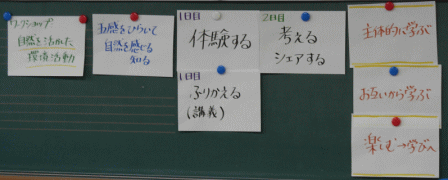 ワークショップ
自然を活かした
環境活動
五感をひらいて
自然を感じる
知る
1日目
体験する
1日目
ふりかえる
(講義)
2日目
考える
シェアする
主体的に学ぶ
お互いから学ぶ
楽しむ→学びへ